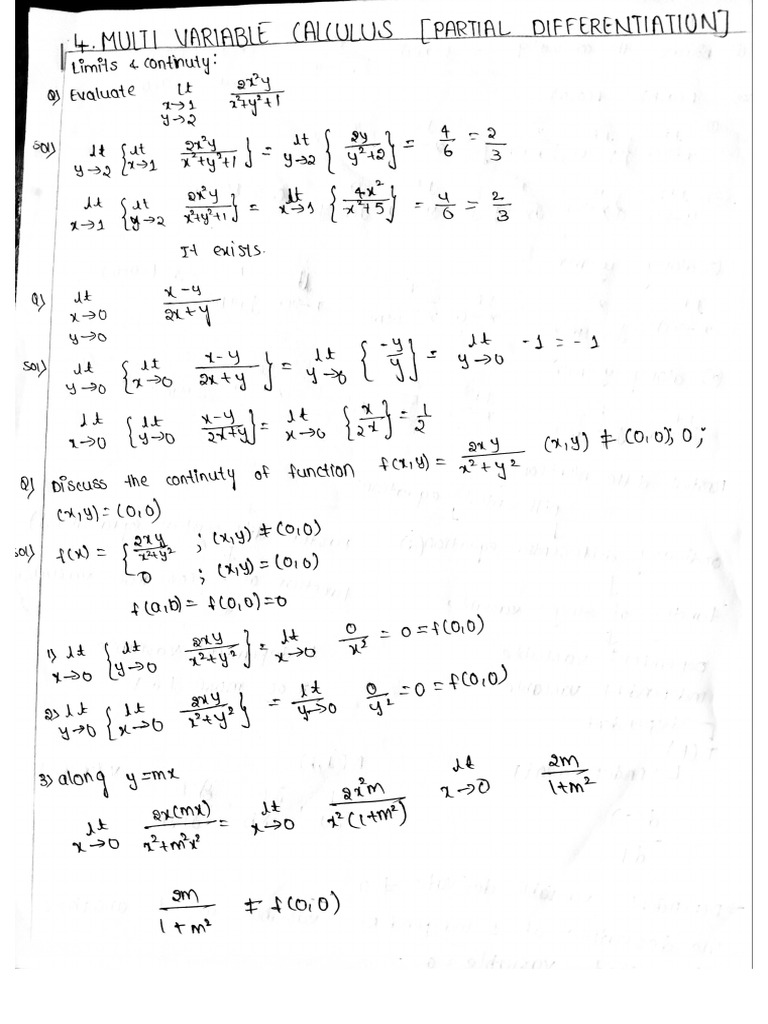 4. MULTI VARIABLE CALCULUS [PARTIAL DIFFERENTIATION]
Limits & continuty:
Q) Evaluate lt x→1 y→2 2x²y/x²+y²+1
Sol) lt y→2 {lt x→1 2x²y/x²+y²+1} = lt y→2 {2y/y²+2} = 4/6 = 2/3
lt x→1 {lt y→2 2x²y/x²+y²+1} = lt x→1 {4x²/x²+5} = 4/6 = 2/3
It exists.
Q) lt x→0 y→0 x-y/2x+y
Sol) lt y→0 {lt x→0 x-y/2x+y} = lt y→0 {-y/y} = lt y→0 -1 = -1
lt x→0 {lt y→0 x-y/2x+y} = lt x→0 {x/2x} = 1/2
Q) Discuss the continuty of function f(x,y) = 2xy/x²+y² (x,y) ≠ (0,0); 0;
(x,y) = (0,0)
Sol) f(x) = {2xy/x²+y² ; (x,y) ≠ (0,0)
0 ; (x,y) = (0,0)
f(a,b) = f(0,0) = 0
1) lt x→0 {lt y→0 2xy/x²+y²} = lt x→0 0/x² = 0 = f(0,0)
2) lt y→0 {lt x→0 2xy/x²+y²} = lt y→0 0/y² = 0 = f(0,0)
3) along y=mx
lt x→0 2x(mx)/x²+m²x² = lt x→0 2x²m/x²(1+m²) lt x→0 2m/1+m²
2m/1+m² ≠ f(0,0)